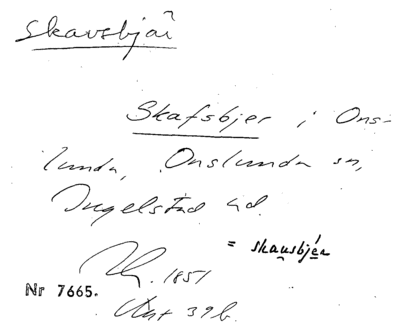 Skavsbjär
Skafsbjer i Ons-
lunda, Onslunda sn,
Ingelstad hd.
= skausbjér
1851
Nr 7665.
39 b.